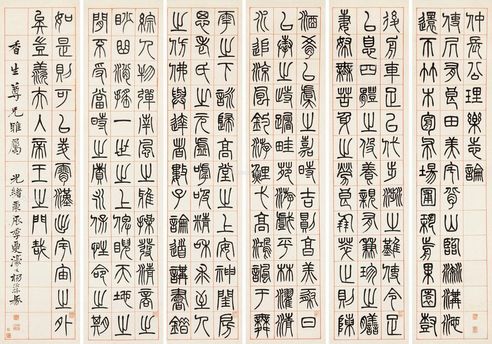 仲長公理樂志論
使居有良田美宅背山臨流溝池
環帀竹木周布場圃築前果園樹
後舟車足以代步涉之難使令足
以息四體之役養親有兼珍之膳
妻孥無苦身之勞良朋萃止則陳
酒肴以娛之嘉時吉日則亨羔豚以
奉之躊躇畦苑遊戲平林濯清
水追涼風釣游鯉弋高鴻諷於舞
雩之下詠歸高堂之上安神閨房
思老氏之玄虛呼吸精和求至人
之仿佛與達者數子論道講書錯
綜人物彈南風之雅操發清商之
妙曲逍遙一世之上睥睨天地之
間不受當時之責永保性命之期
如是則可以淩霄漢出宇宙之外
矣豈羨夫入帝王之門哉
香生尊兄雅屬 光緒 季夏濠叟